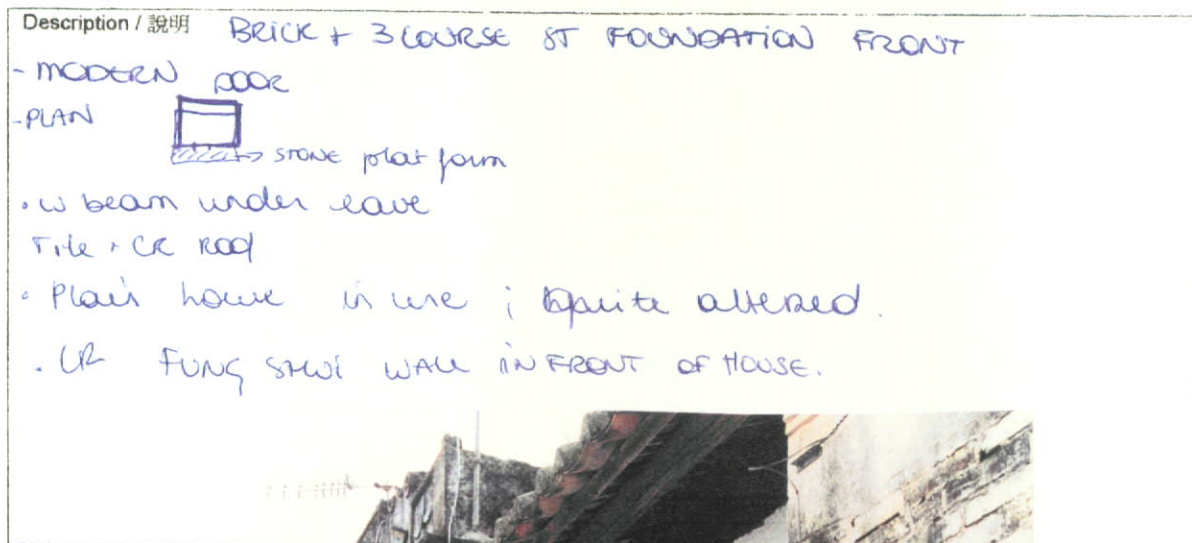 Description / 說明 BRICK + 3 COURSE ST FOUNDATION FRONT
- MODERN DOOR
- PLAN
STONE platform
• W beam under eave
Tile + CR Roof
• Plain house in use ; quite altered.
. CR FUNG SHUI WALL IN FRONT OF HOUSE.